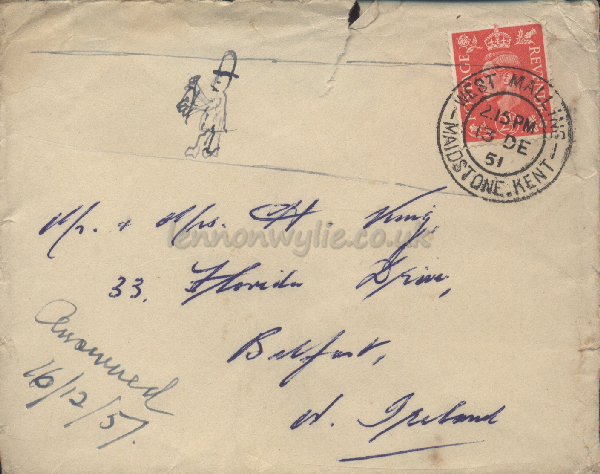 POSTAGE REVENUE
WEST MALLING
2.15 PM
13 DE
51
MAIDSTONE. KENT
Mr. + Mrs. H. King,
lennonwylie.co.uk
33, Florida Drive,
Belfast,
N. Ireland
Answered
16/12/51.